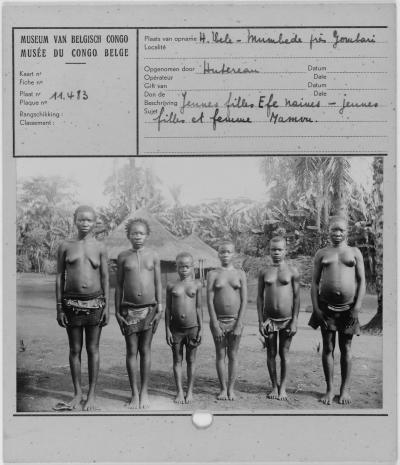 MUSEUM VAN BELGISCH CONGO
MUSÉE DU CONGO BELGE
Kaart nº
Fiche nº
Plaat nº 11.483
Plaque nº
Rangschikking :
Classement :
Plaats van opname H. Uele - Mumbede près Gombari
Localité
Opgenomen door Hutereau Datum
Opérateur Date
Gift van Datum
Don de Date
Beschrijving Jeunes filles Efe naines - jeunes
Sujet filles et femme Mamvu.